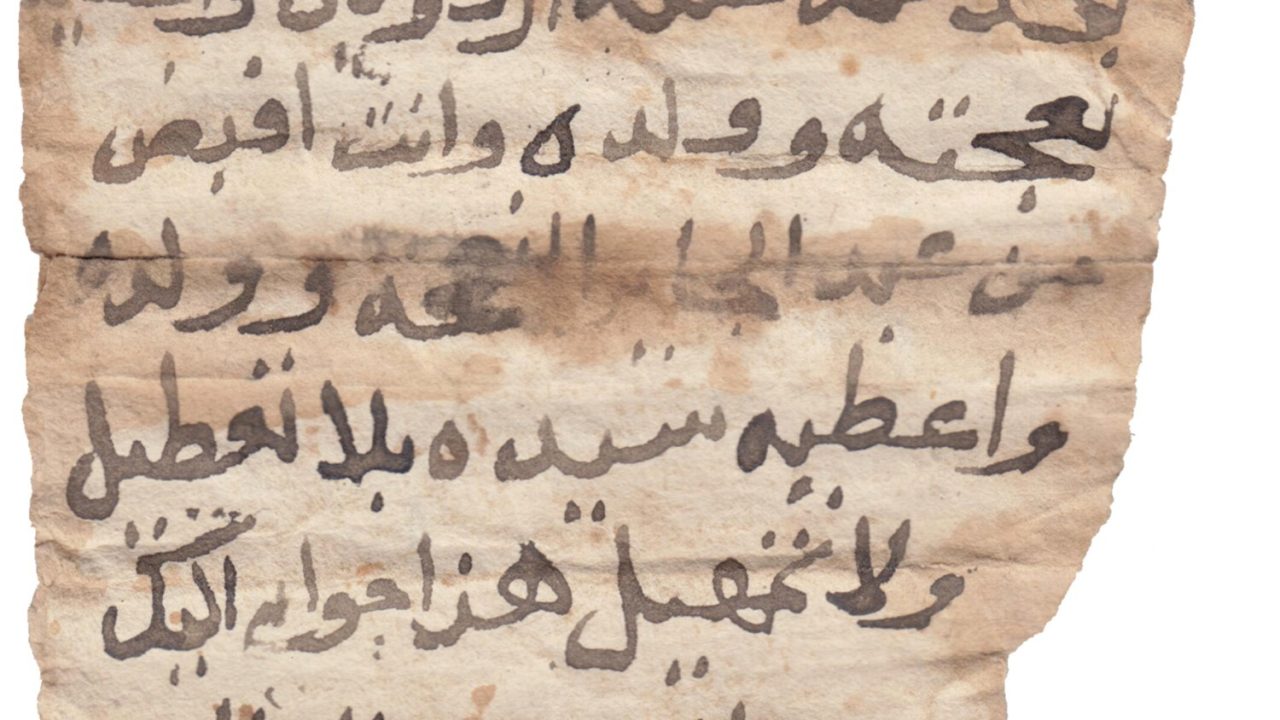 نعجته وولده وانت اقبض
من عبد الجابر النعجه وولده
واعطيه سيده بلا تعطيل
ولا تمهيل هذا جوابي اليك